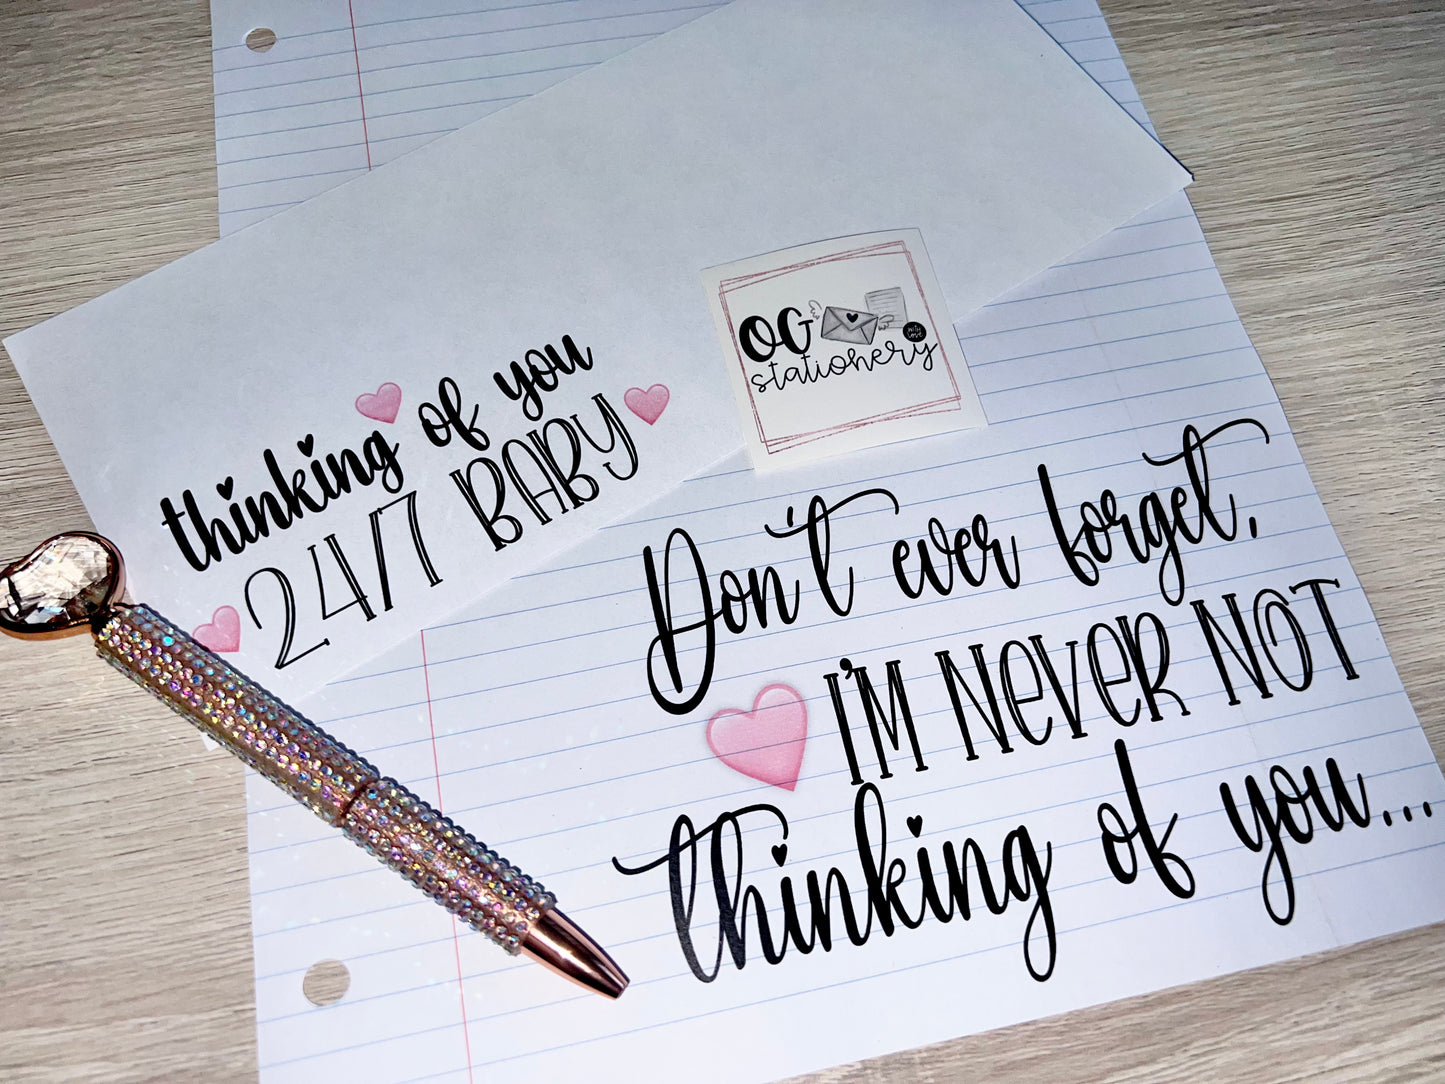 thinking of you
24/7 BABY
OG
with love
stationery
Don't ever forget,
I'M NEVER NOT
thinking of you...